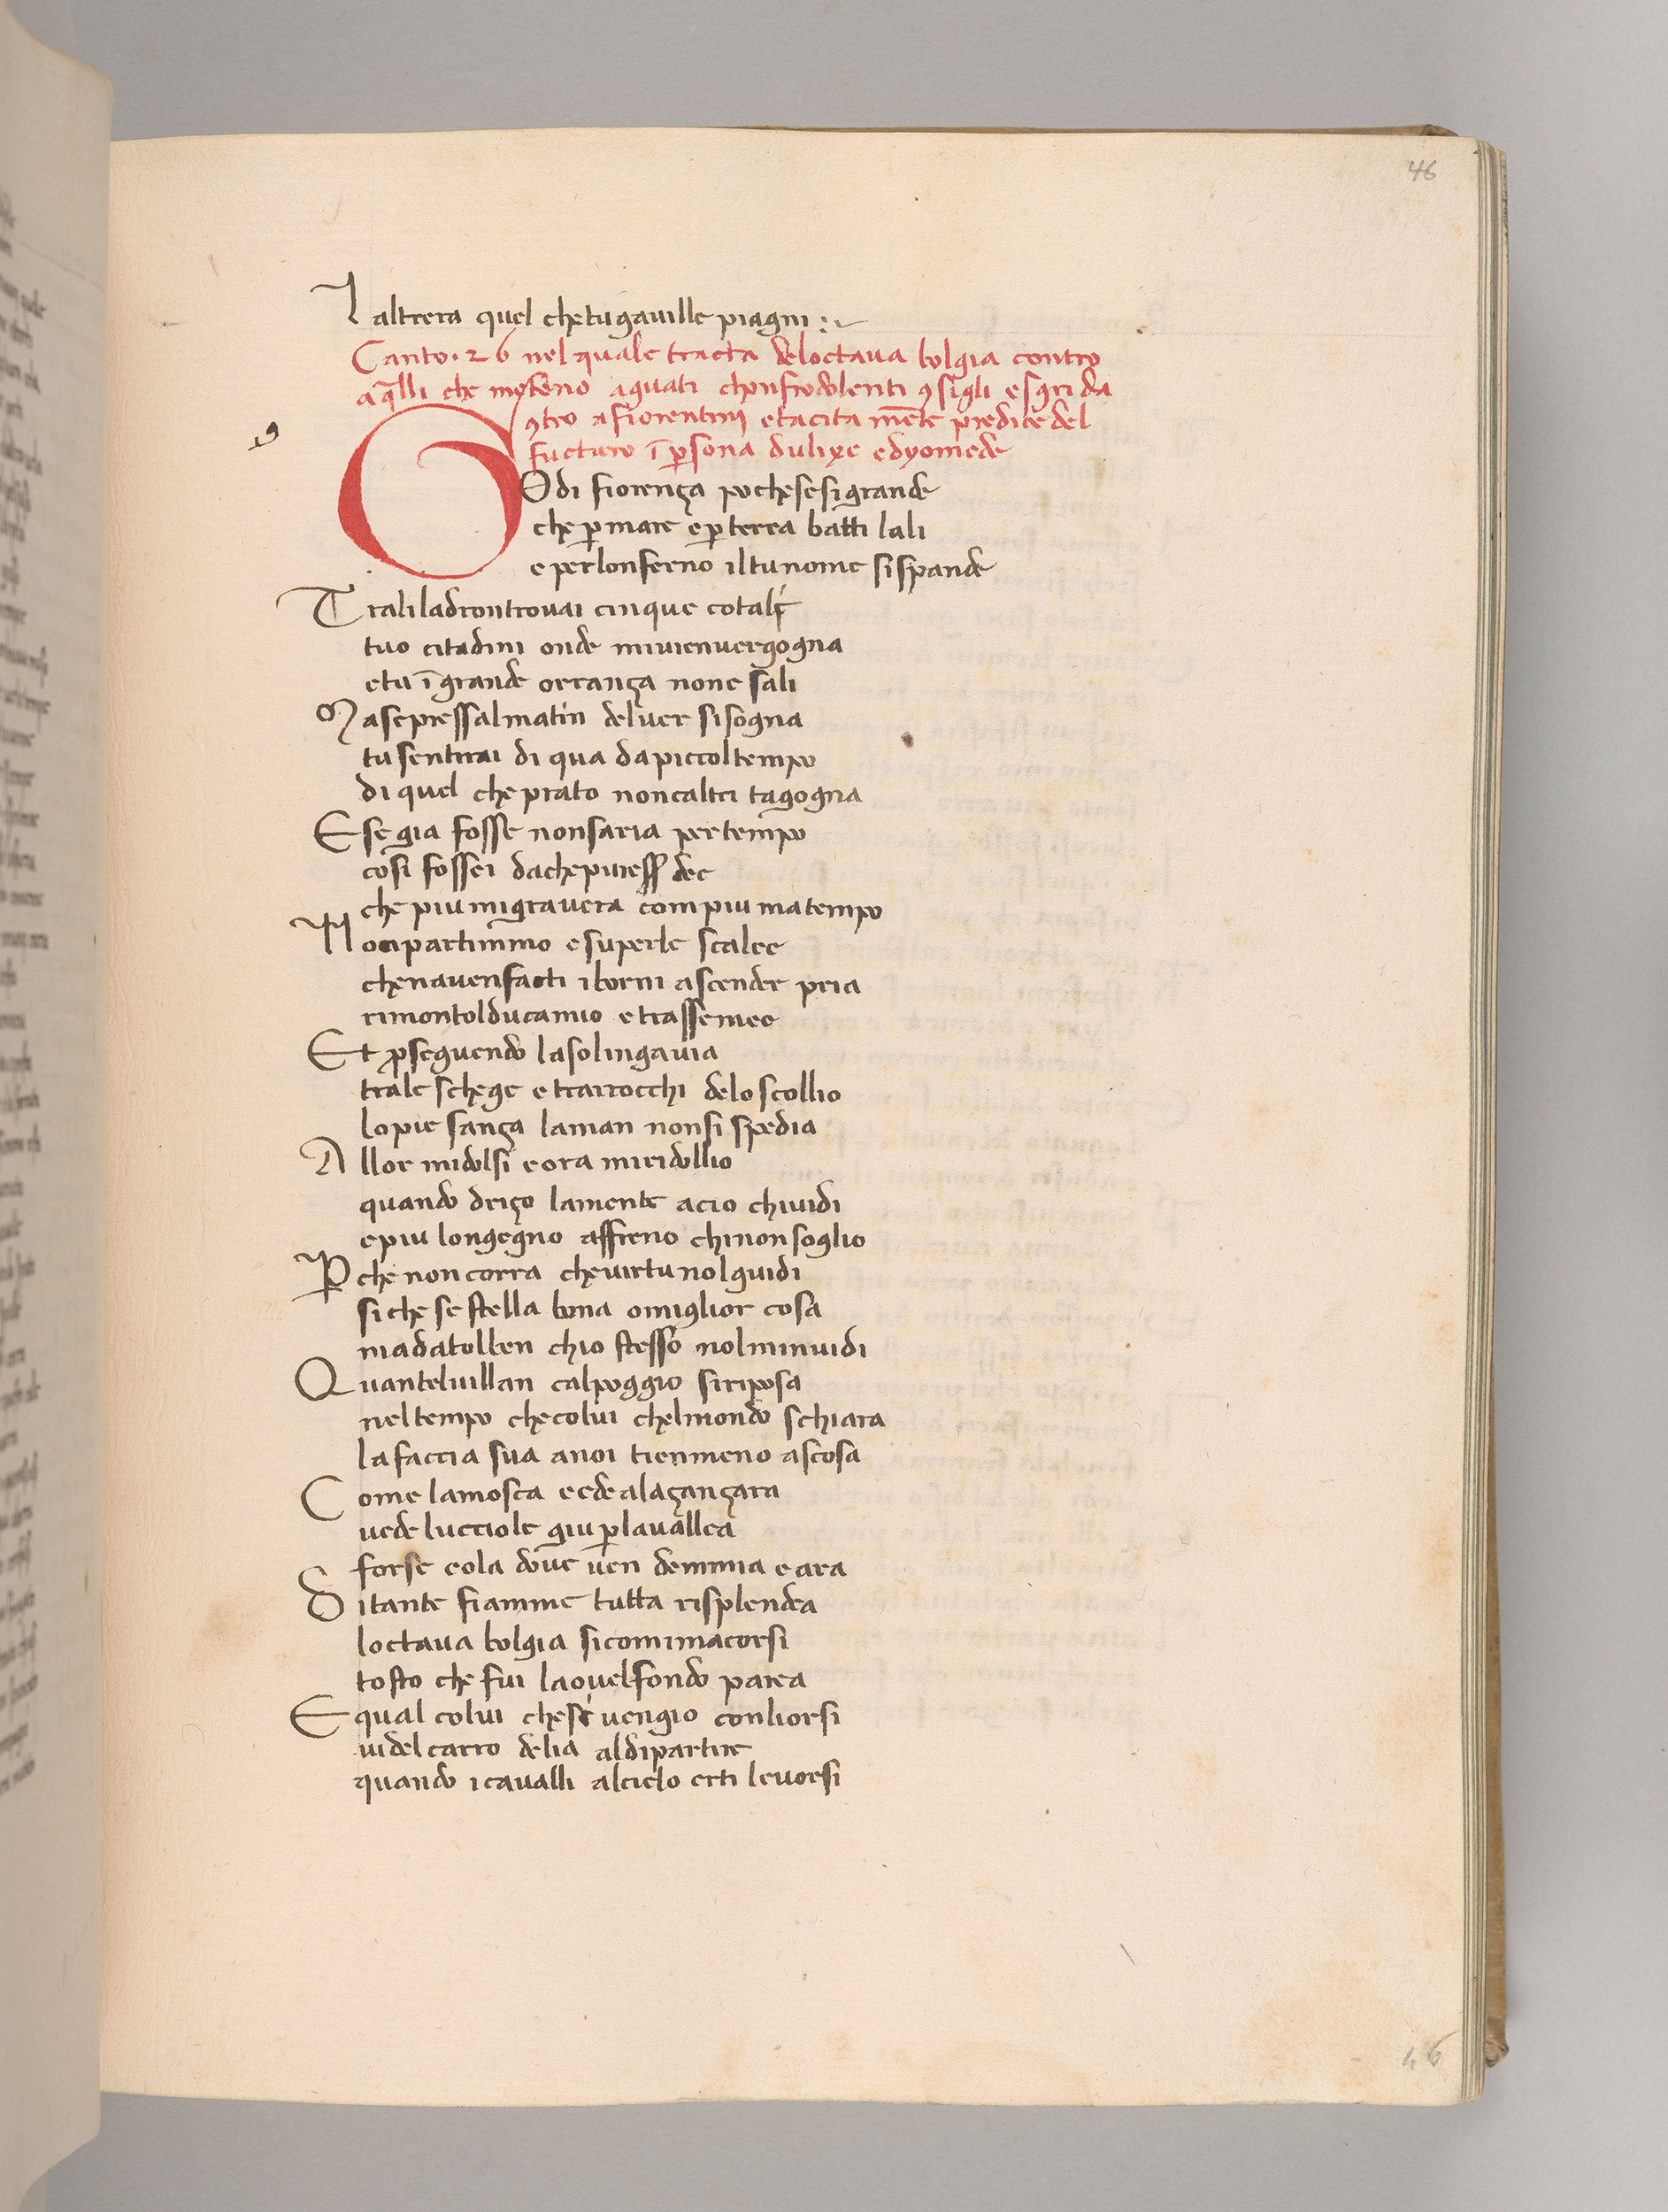 46
l altrera quel che tu gaville piagni :~
Canto · 26 nel quale tracta deloctava bolgia contro
a q̄lli che metteno aguati chonfrodolenti ꝯsigli e sgrida
ꝯtro a fiorentini e tacita mēte predice del
fucturo ī ꝑsona dulixe e dyomede
Odi fiorença poche se si grande
che ꝑ mare e ꝑ terra batti lali
e per lonferno il tu nome si spande
Tra li ladron trovai cinque cotali
tuo citadini onde mi vien vergogna
e tu ī grande orrança non e sali
Ma se pressal matin del ver si sogna
tu sentirai di qua da piccol tempo
di quel che prato non caltri tagogna
E se gia fosse non saria per tempo
cosi fossei da che pur esser dee
che piu mi gravera com piu matempo
Noi partimmo e su per le scalee
che naven facti i borni a scender pria
rimontol duca mio e trasse mee
Et ꝓseguendo la solinga via
tra le schege e tra rocchi de lo scollio
lo pie sança la man non si spedia
Allor mi dolsi e ora mi ridollio
quando driço la mente a cio chi vidi
e piu longegno affreno chi non soglio
Ꝑche non corra che virtu nol guidi
si che se stella bona o miglior cosa
ma datol ben chio stesso nol minvidi
Quantel villan cal poggio si riposa
nel tempo che colui chel mondo schiara
la faccia sua a noi tien meno ascosa
Come la mosca cede a la çançara
vede lucciole giu ꝑ la vallea
forse cola dove ven demmia e ara
Di tante fiamme tutta risplendea
loctava bolgia si comi macorsi
tosto che fui la ovel fondo parea
E qual colui che si vengio con liorsi
videl carro delia al dipartire
quando i cavalli al cielo erti levorsi
46